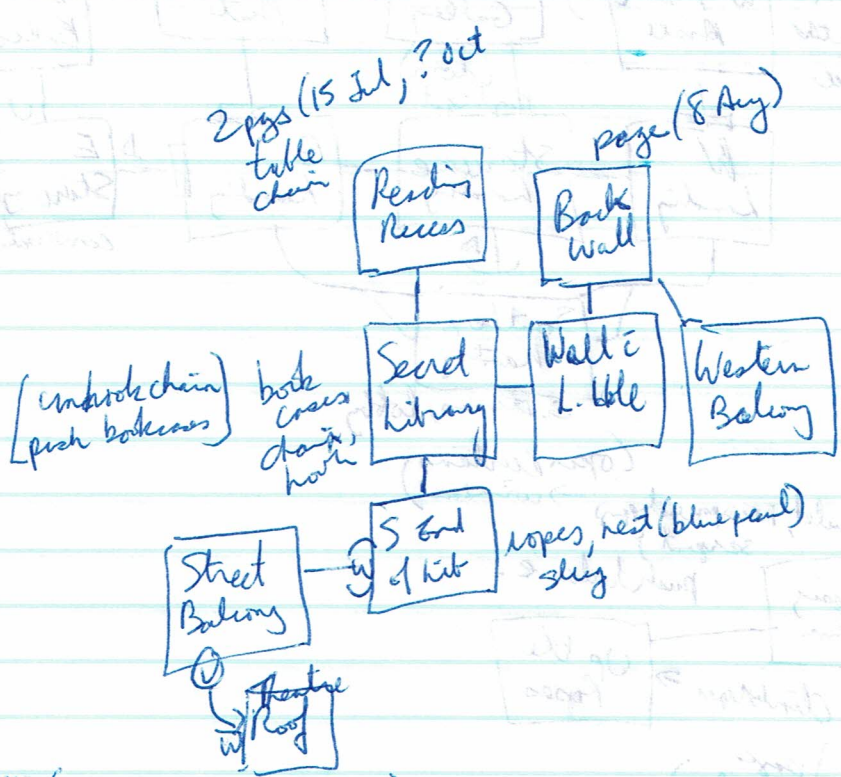 2 pgs (15 Jul, ? Oct
table
chain
page (8 Aug)
Reading
Recess
Back
Wall
[unhook chain]
[push bookcases
book
cases
chain,
hook
Secret
Library
Wall c̄
L. bble
Western
Balcony
S End
of Lib
ropes, nest (blue pearl)
slug
Street
Balcony
W
U
Theatre
Roof
W